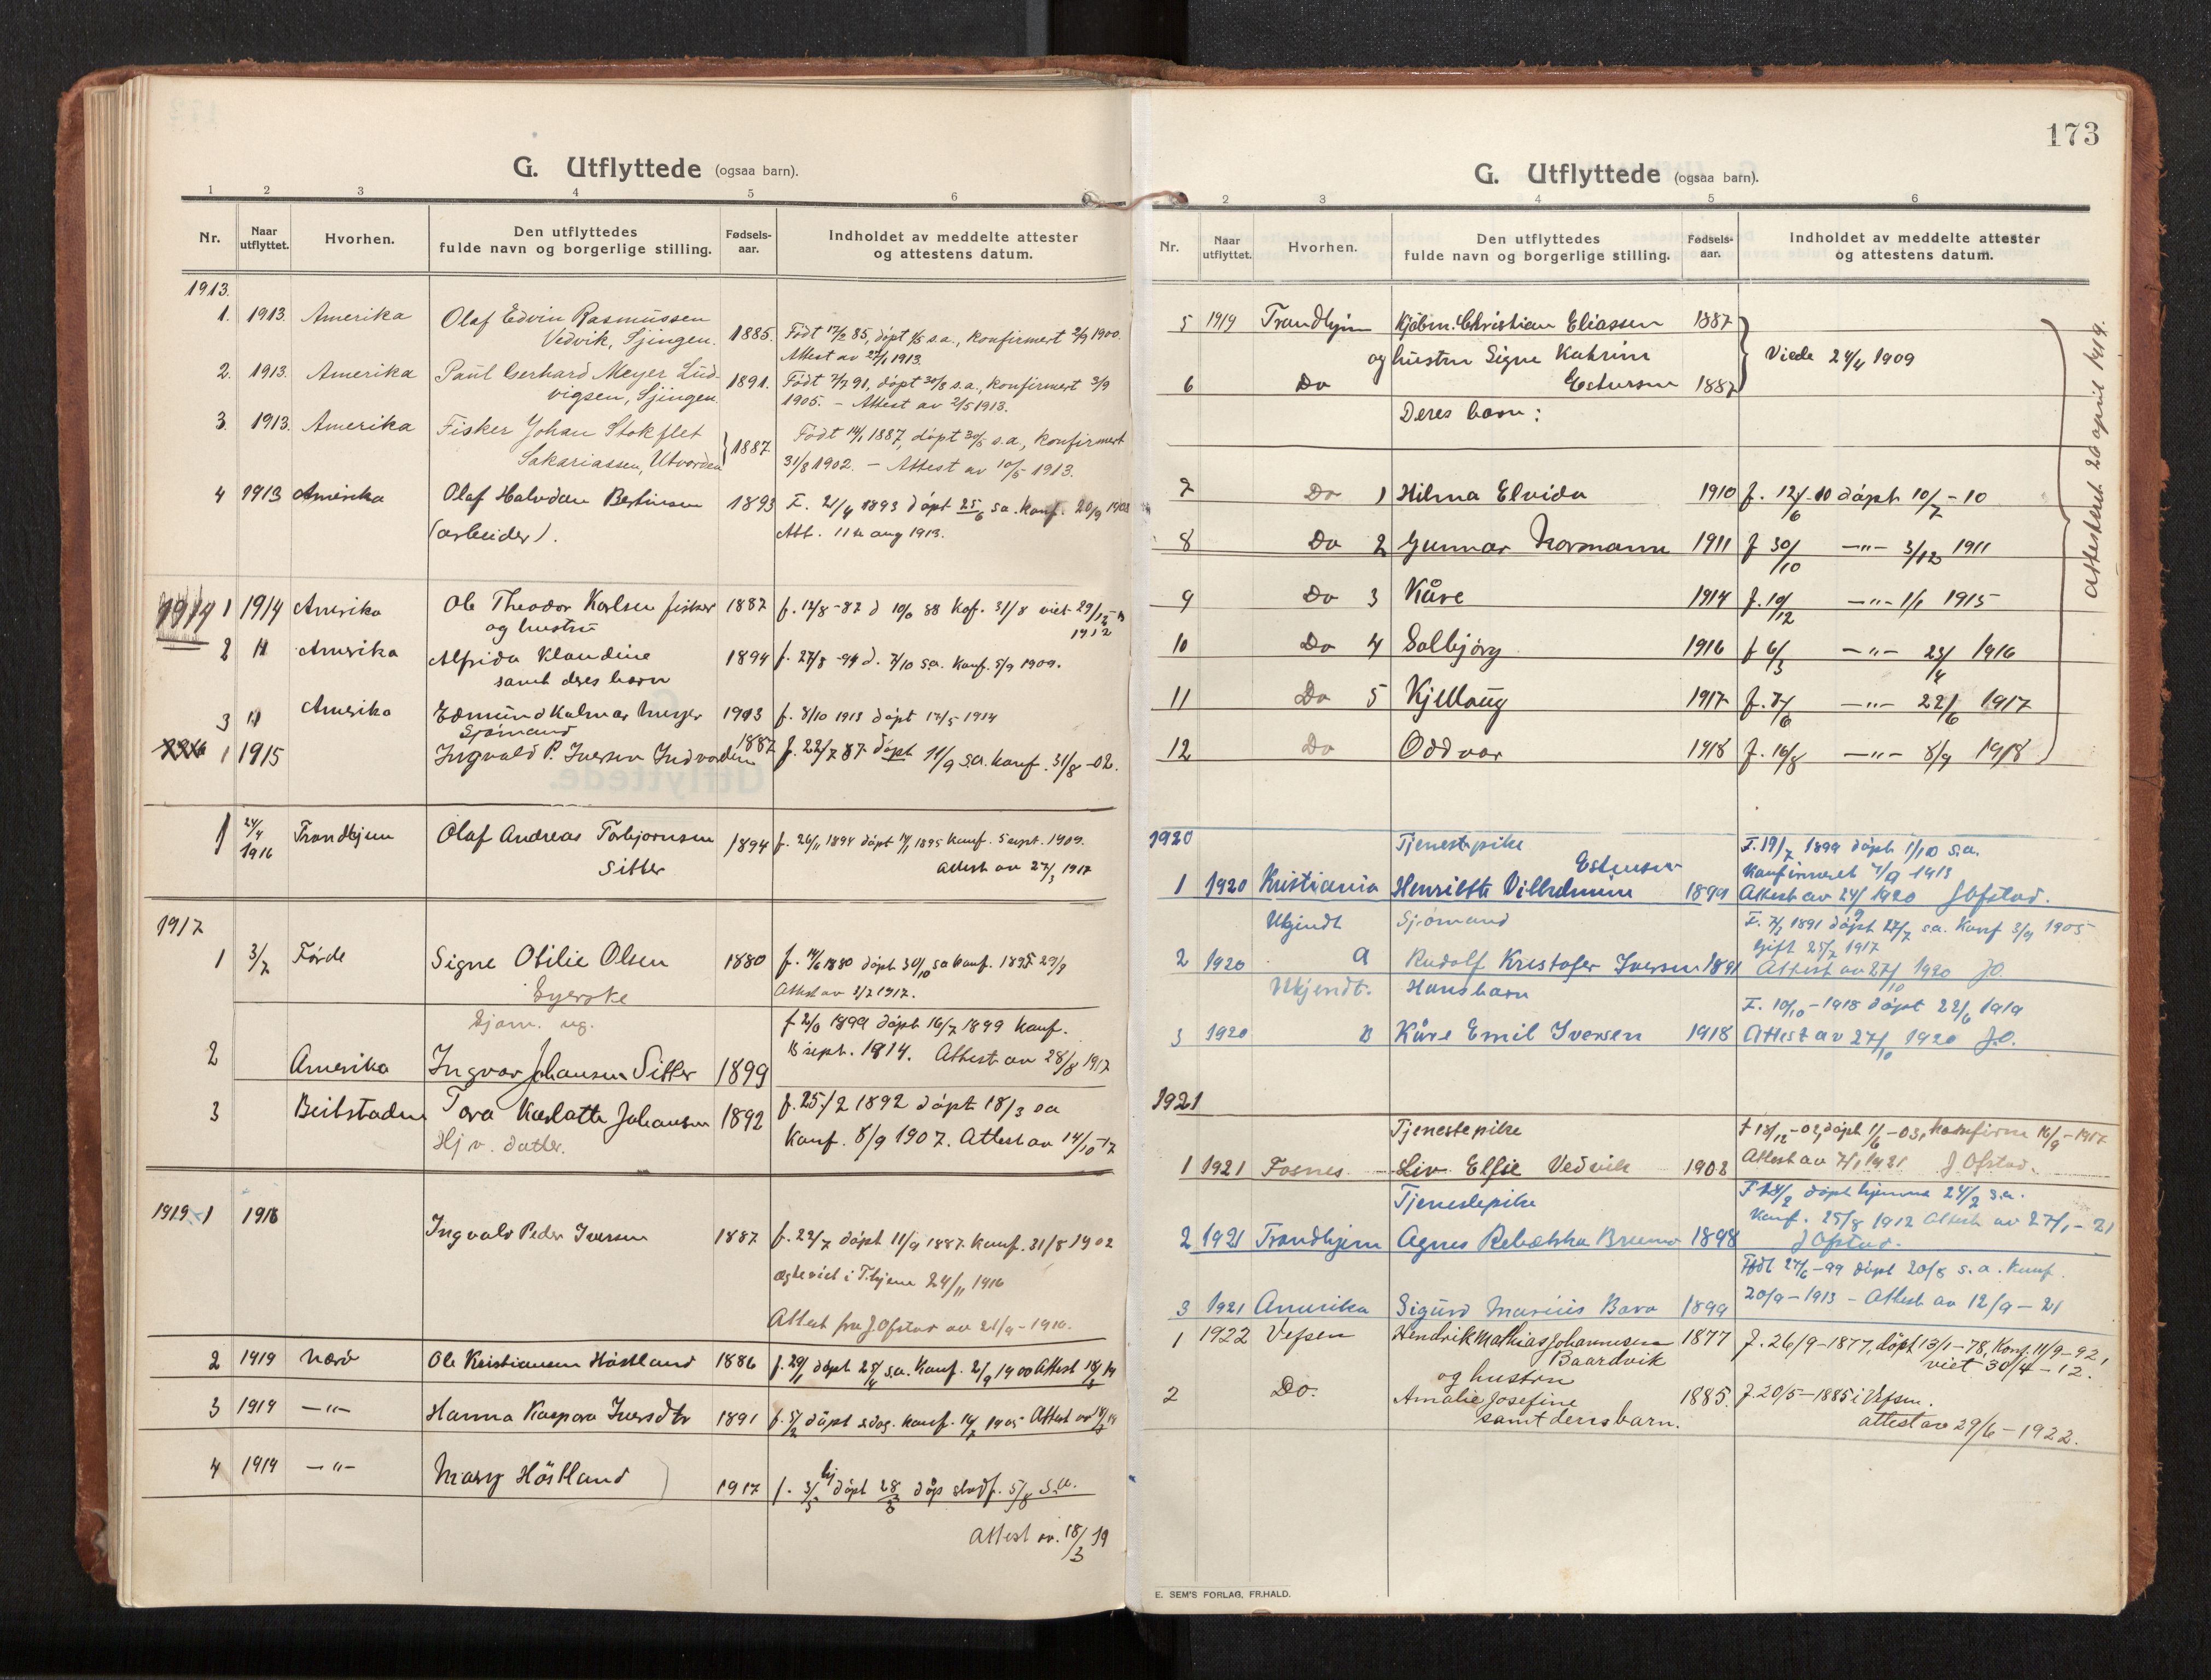 G. Utflyttede (ogsaa barn).
1 2 3 4 5 6
Nr. Naar utflyttet. Hvorhen. Den utflyttedes fulde navn og borgerlige stilling. Fødsels-aar. Indholdet av meddelte attester og attestens datum.
1913.
1. 1913. Amerika Olaf Edvin Rasmussen
Vedvik, Sjingen. 1885. Födt 17/2 85, döpt 1/5 s.a., konfirmert 2/9 1900.
Attest av 27/1 1913.
2. 1913. Amerika Paul Gerhard Meyer Lud-
vigsen, Sjingen. 1891. Födt 7/7 91, döpt 30/8 s.a., konfirmert 3/9
1905. – Attest av 2/5 1913.
3. 1913. Amerika Fisker Johan Stokflet
Sakariassen, Utvorden 1887 Födt 14/1 1887, döpt 30/5 s.a., konfirmert
31/8 1902. – Attest av 10/5 1913.
4 1913 Amerika Olaf Halvdan Bertinsen 1893 F. 21/4 1893 döpt 25/6 s.a. konf. 20/9 1908
(arbeider). Att. 11te aug 1913.
1914 1 1914 Amerika Ole Theodor Karlsen fisker 1887 f. 12/8 -87 d 10/0 88 Kof. 31/8 viet 29/12
og hustru 1912
2 " Amerika Alfrida Klaudine 1894 f. 27/8 -94 d. 7/10 s.a. Konf. 5/9 1909.
samt deres barn
3 " Amerika Edmund Kalmar Meyer 1913 f. 8/10 1913 döpt 17/5 1914
Sjömand
1 1915 Ingvald P. Iversen Indvorden 1887 f. 22/7 87 döpt 11/9 s.a. konf. 31/8 -02.
1 24/4 1916 Trondhjem Olaf Andreas Torbjornsen 1894 f. 26/11 1894 döpt 14/1 1895 Konf. 5 sept. 1909.
Sitter Attest av 27/3 1917
1917
1 3/7 Förde Signe Otilie Olsen 1880 f. 14/6 1880 döpt 30/10 s.a konf. 1895 29/9
Syerske Attest av 3/7 1917.
Sjöm. ug. f 2/6 1899 döpt 16/7 1899 Konf.
2 Amerika Ingvar Johansen Sitter 1899 13 sept. 1914. Attest av 28/8 1917
3 Beitstaden Tora Karlotte Johansen 1892 f. 25/2 1892 döpt 18/3 sa
Hj v. datter. Konf. 8/9 1907. Attest av 14/10-17
1919 1 1916 Ingvald Peder Iversen 1887 f. 22/7 döpt 11/9 1887. Konf. 31/8 1902
ægteviet i T.hjem 24/11 1916
Attest fra J. Ofstad av 21/9 - 1918.
2 1919 Nærö Ole Kristiansen Höstland 1886 f. 29/1 döpt 25/4 s.a. Konf. 2/9 1900 Attest 18/3 19
3 1919 –"– Hanna Kaspara Iversdtr 1891 f. 5/2 döpt s.dag. konf. 14/7 1905 Attest av 18/3 19
4 1919 –"– Mary Höstland 1917 f. 3/3 hj döpt 28/3 döp stadf. 5/8 s.a.
Attest av. 18/3 19
173
G. Utflyttede (ogsaa barn).
2 3 4 5 6
Nr. Naar utflyttet. Hvorhen. Den utflyttedes fulde navn og borgerlige stilling. Fødsels-aar. Indholdet av meddelte attester og attestens datum.
5 1919 Trondhjem Kjöbm. Christian Eliassen 1887
og hustru Signe Katrine Viede 24/4 1909
6 Do Estensen 1887
Deres barn:
7 Do 1 Hilma Elvida 1910 f. 12/6 -10 döpt 10/7 - 10
8 Do 2 Gunnar Normann 1911 f 30/10 –"– 3/12 1911
9 Do 3 Kåre 1914 f. 10/12 –"– 1/1 1915
10 Do 4 Solbjörg 1916 f 6/3 –"– 23/4 1916
11 Do 5 Kjellaug 1917 f. 7/6 –"– 22/6 1917
12 Do Oddvar 1918 f. 16/8 –"– 8/9 1918
Attesteret 20 april 1919.
1920 Tjenestepike F. 19/7 1899 döpt 1/10 s.a.
Estensen Konfirmeret 7/9 1913
1 1920 Kristiania Henriette Vilhelmine 1899 Attest av 24/9 1920 JOfstad.
Ukjendt Sjömand F. 7/1 1891 döpt 27/7 s.a. Konf 3/9 1905
Gift 25/7 1917
2 1920 a Rudolf Kristofer Iversen 1891 Attest av 27/10 1920 JO.
Ukjendt. Hans barn F. 10/10 - 1918 döpt 22/6 1919
3 1920 b Kåre Emil Iversen 1918 Attest av 27/10 1920 J.O.
1921
Tjenestepike f 13/12 -02, döpt 1/6 -03, konfirm 16/9 - 1917
1 1921 Fosnes Liv Elfie Vedvik 1902 Attest av 7/1 1921 J Ofstad.
Tjenestepike F 18/2 döpt hjemme 24/2 s.a.
Konf. 25/8 1912 Attest av 27/1 - 21
2 1921 Trondhjem Agnes Rebekka Bremo 1898 J Ofstad.
Födt 27/6 -99 döpt 20/8 s.a. Konf.
3 1921 Amerika Sigurd Marius Barø 1899 20/9 - 1913 - Attest av 12/9 - 21
1 1922 Vefsen Hendrik Mathias Johannesen 1877 f. 26/9 - 1877, döpt 13/1 - 78, Konf. 11/9 - 92,
Baardvik viet 30/4 - 12.
og hustru
2 Do. Amalie Josefine 1885. f. 20/5 - 1885 i Vefsen.
samt deres barn. attest av 29/6 - 1922.
E. SEM'S FORLAG, FR.HALD.